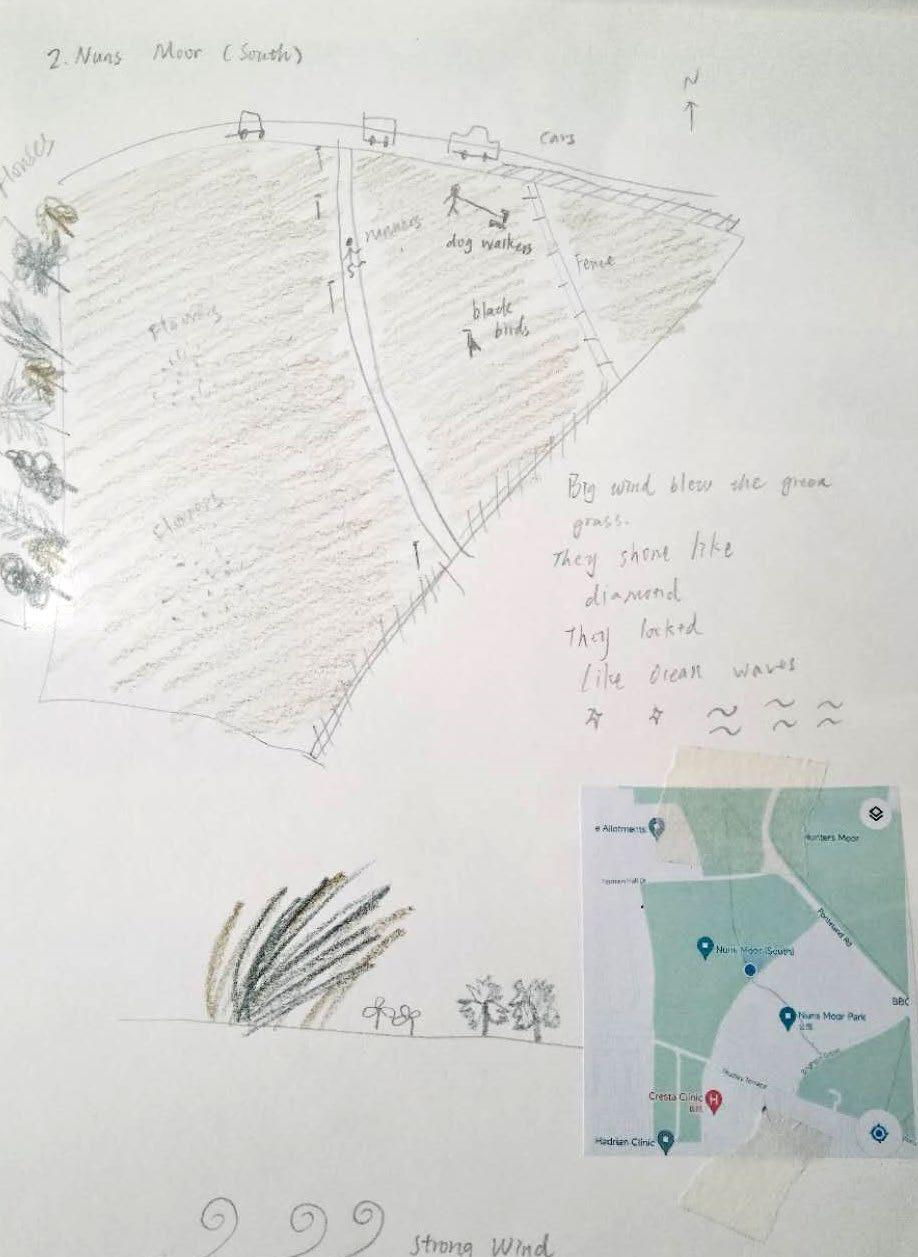 2. Nuns Moor (South)
N
Houses
cars
runners
dog walkers
Fence
black
birds
Flowers
Flowers
Big wind blew the green
grass.
They shone like
diamond
They looked
like ocean waves
e Allotments
Hunters Moor
Ponteland Rd
Nuns Moor (South)
BBC
Nuns Moor Park
公园
Cresta Clinic
H
Hadrian Clinic
Strong Wind